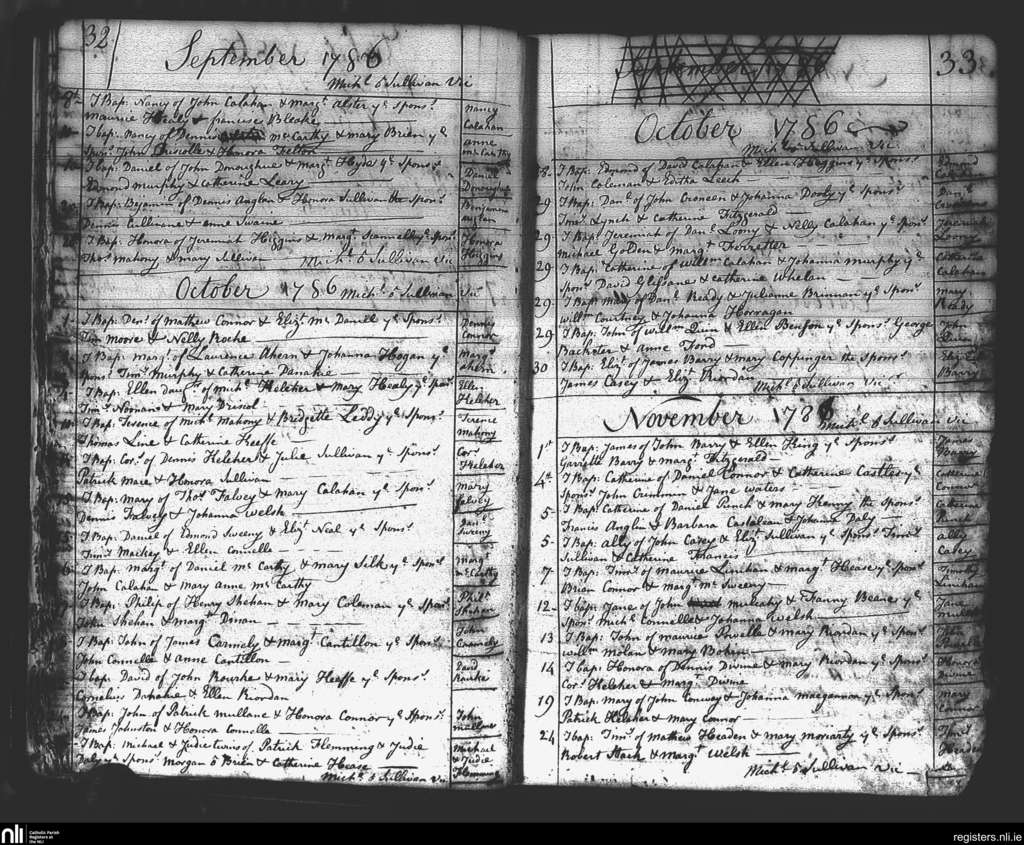 32
September 1786
Mich.l ó Sullivan Vic
I Bap: Nancy of John Calahan & Marg.t Alster y.e Spons.rs
Maurice Healy & francises Bleake
Nancy Calahan
I bap: Nancy of Dennis mcCarthy & mary Brien y.e
Spon.rs John Driscoll & Honora Felton
anne mcCarthy
I Bap: Daniel of John Donoughue & Marg.t Hyde y.e Spons.rs
Edmond Murphy & Catherine Leary
Daniel Donoughue
I Bap: Benjamin of Dennis Anglan & Honora Sullivan the Spon.rs
Dennis Cullinane & anne Swaine
Benjamin
I Bap: Honora of Jeremiah Higgins & Marg.t Scannell y.e Spon.rs
Tho.s Mahony & Mary Sullivan
Mich.l ó Sullivan Vic
Honora Higgins
October 1786 Mich.l ó Sullivan Vic
I Bap: Den.s of Mathew Connor & Eliz.t Mc Daniell y.e Spons.rs
Tim Moore & Nelly Roche
Denny Connor
I Bap: Marg.t of Laurence Ahern & Johanna Hogan y.e
Spons.rs Tim.o Murphy & Catherine Danahie
Marg.t ahern
I Bap: Ellen daug.r of Mich.l Keleher & Mary Healy y.e Spons.rs
Tim.o Noonane & Mary Driscol
Ellen Keleher
I Bap: Terence of Mich.l Mahony & Bridgette Leddy y.e Spons.rs
Thomas Line & Catherine Keeffe
Terence Mahony
I Bap: Cor.s of Dennis Keleher & Julie Sullivan y.e Spons.rs
Patrick Mare & Honora Sullivan
Cor.s Keleher
I Bap: Mary of Tho.s Falvey & Mary Calahan y.e Spons.rs
Dennis Falvey & Johanna Welsh
Mary falvey
I Bap: Daniel of Edmond Sweeny & Eliz.t Neal y.e Spons.rs
Tim.o Mackey & Ellen Connella
Dan.l Sweeny
I Bap: Marg.t of Daniel Mc Carthy & Mary Silk y.e Spon.rs
John Calahan & Mary Anne Mc Carthy
Marg.t McCarthy
I Bap: Philip of Henry Shehan & Mary Coleman y.e Spon.rs
John Shehan & Marg.t Dinan
Phil.p Shehan
I Bap: John of James Cannely & Marg.t Cantillon y.e Spons.rs
John Connelle & Anne Cantillon
John Cannely
I bap: David of John Rourke & Mary Keeffe y.e Spons.rs
Cornelius Danahie & Ellen Riordan
David Rourke
I Bap: John of Patrick Mullane & Honora Connor y.e Spon.rs
James Johnston & Honora Connella
John Mullane
I Bap: Michael & Judie twins of Patrick Flemming & Judie
Daly y.e Spons.rs Morgan ó Brien & Catherine Hease
Mich.l ó Sullivan Vic
Michael & Judie Flemming
33
October 1786
Mich.l ó Sullivan Vic.
28. I Bap: Edmond of David Calahan & Ellen Higgins y.e Spons.rs
John Coleman & Editha Leech
Edmond
29 I Bap: Dan.l of John Croneen & Johanna Dooly y.e Spons.rs
Tim.o Lynch & Catherine Fitzgerald
Dan.l
29. I Bap: Jeremiah of Dan.l Loony & Nelly Calahan y.e Spon.rs
Michael Golden & Marg.t Terretter
Jeremiah Loony
29. I Bap: Catherine of Will.m Calahan & Johanna Murphy y.e
Spon.rs David Glessane & Catherine Whelan
Catherine Calahan
29 I Bap: Mary of Dan.l Ready & Julianne Brinnan y.e Spon.rs
Will.m Courtney & Johanna Horragan
Mary Ready
29 I Bap: John of Will.m Quin & Ellen Benson y.e Spons.rs George
Bachster & Anne Ford
John
30 I Bap: Eliz.t of James Barry & Mary Coppinger the Spons.rs
James Casey & Eliz.t Riordan
Mich.l ó Sullivan Vic
Barry
November 1786
Mich.l ó Sullivan Vic
1.st I Bap: James of John Barry & Ellen King y.e Spons.rs
Garrette Barry & Marg.t Fitzgerald
James Barry
4.th I Bap: Catherine of Daniel Connor & Catherine Castles y.e
Spons.rs John Crimmen & Jane Waters
Catherine Connor
5- I Bap: Catherine of Daniel Punch & Mary Henny the Spons.rs
Francis Anglin & Barbara Castalean & Johanna Daly
Catherine Punch
5- I Bap: Ally of John Casey & Eliz.t Sullivan y.e Spons.rs Tim.o
Sullivan & Catherine Francis
Ally Casey
7 I Bap: Tim.o of Maurice Linihan & Marg.t Hease y.e Spon.rs
Brian Connor & Marg.t Mc Sweeny
Timothy Linihan
12- I bap: Jane of John Mulcahy & Fanny Beare y.e
Spon.rs Mich.l Connella & Johanna Welsh
Jane
13 I Bap: John of Maurice Powells & Mary Riordan y.e Spon.rs
Will.m Nolan & Mary Bohin
John
14 I bap: Honora of Dennis Divine & Mary Riordan y.e Spon.rs
Cor.s Keleher & Marg.t Divine
Honora Divine
19 I Bap: Mary of John Conway & Johanna Maegannan y.e Spon.rs
Patrick Keleher & Mary Connor
Mary
24 I bap: Tim.o of Mathew Headen & Mary Moriarty y.e Spons.rs
Robert Stack & Marg.t Welsh
Tim.o Headen
Mich.l ó Sullivan Vic
nli Catholic Parish
Registers at
the NLI
registers.nli.ie